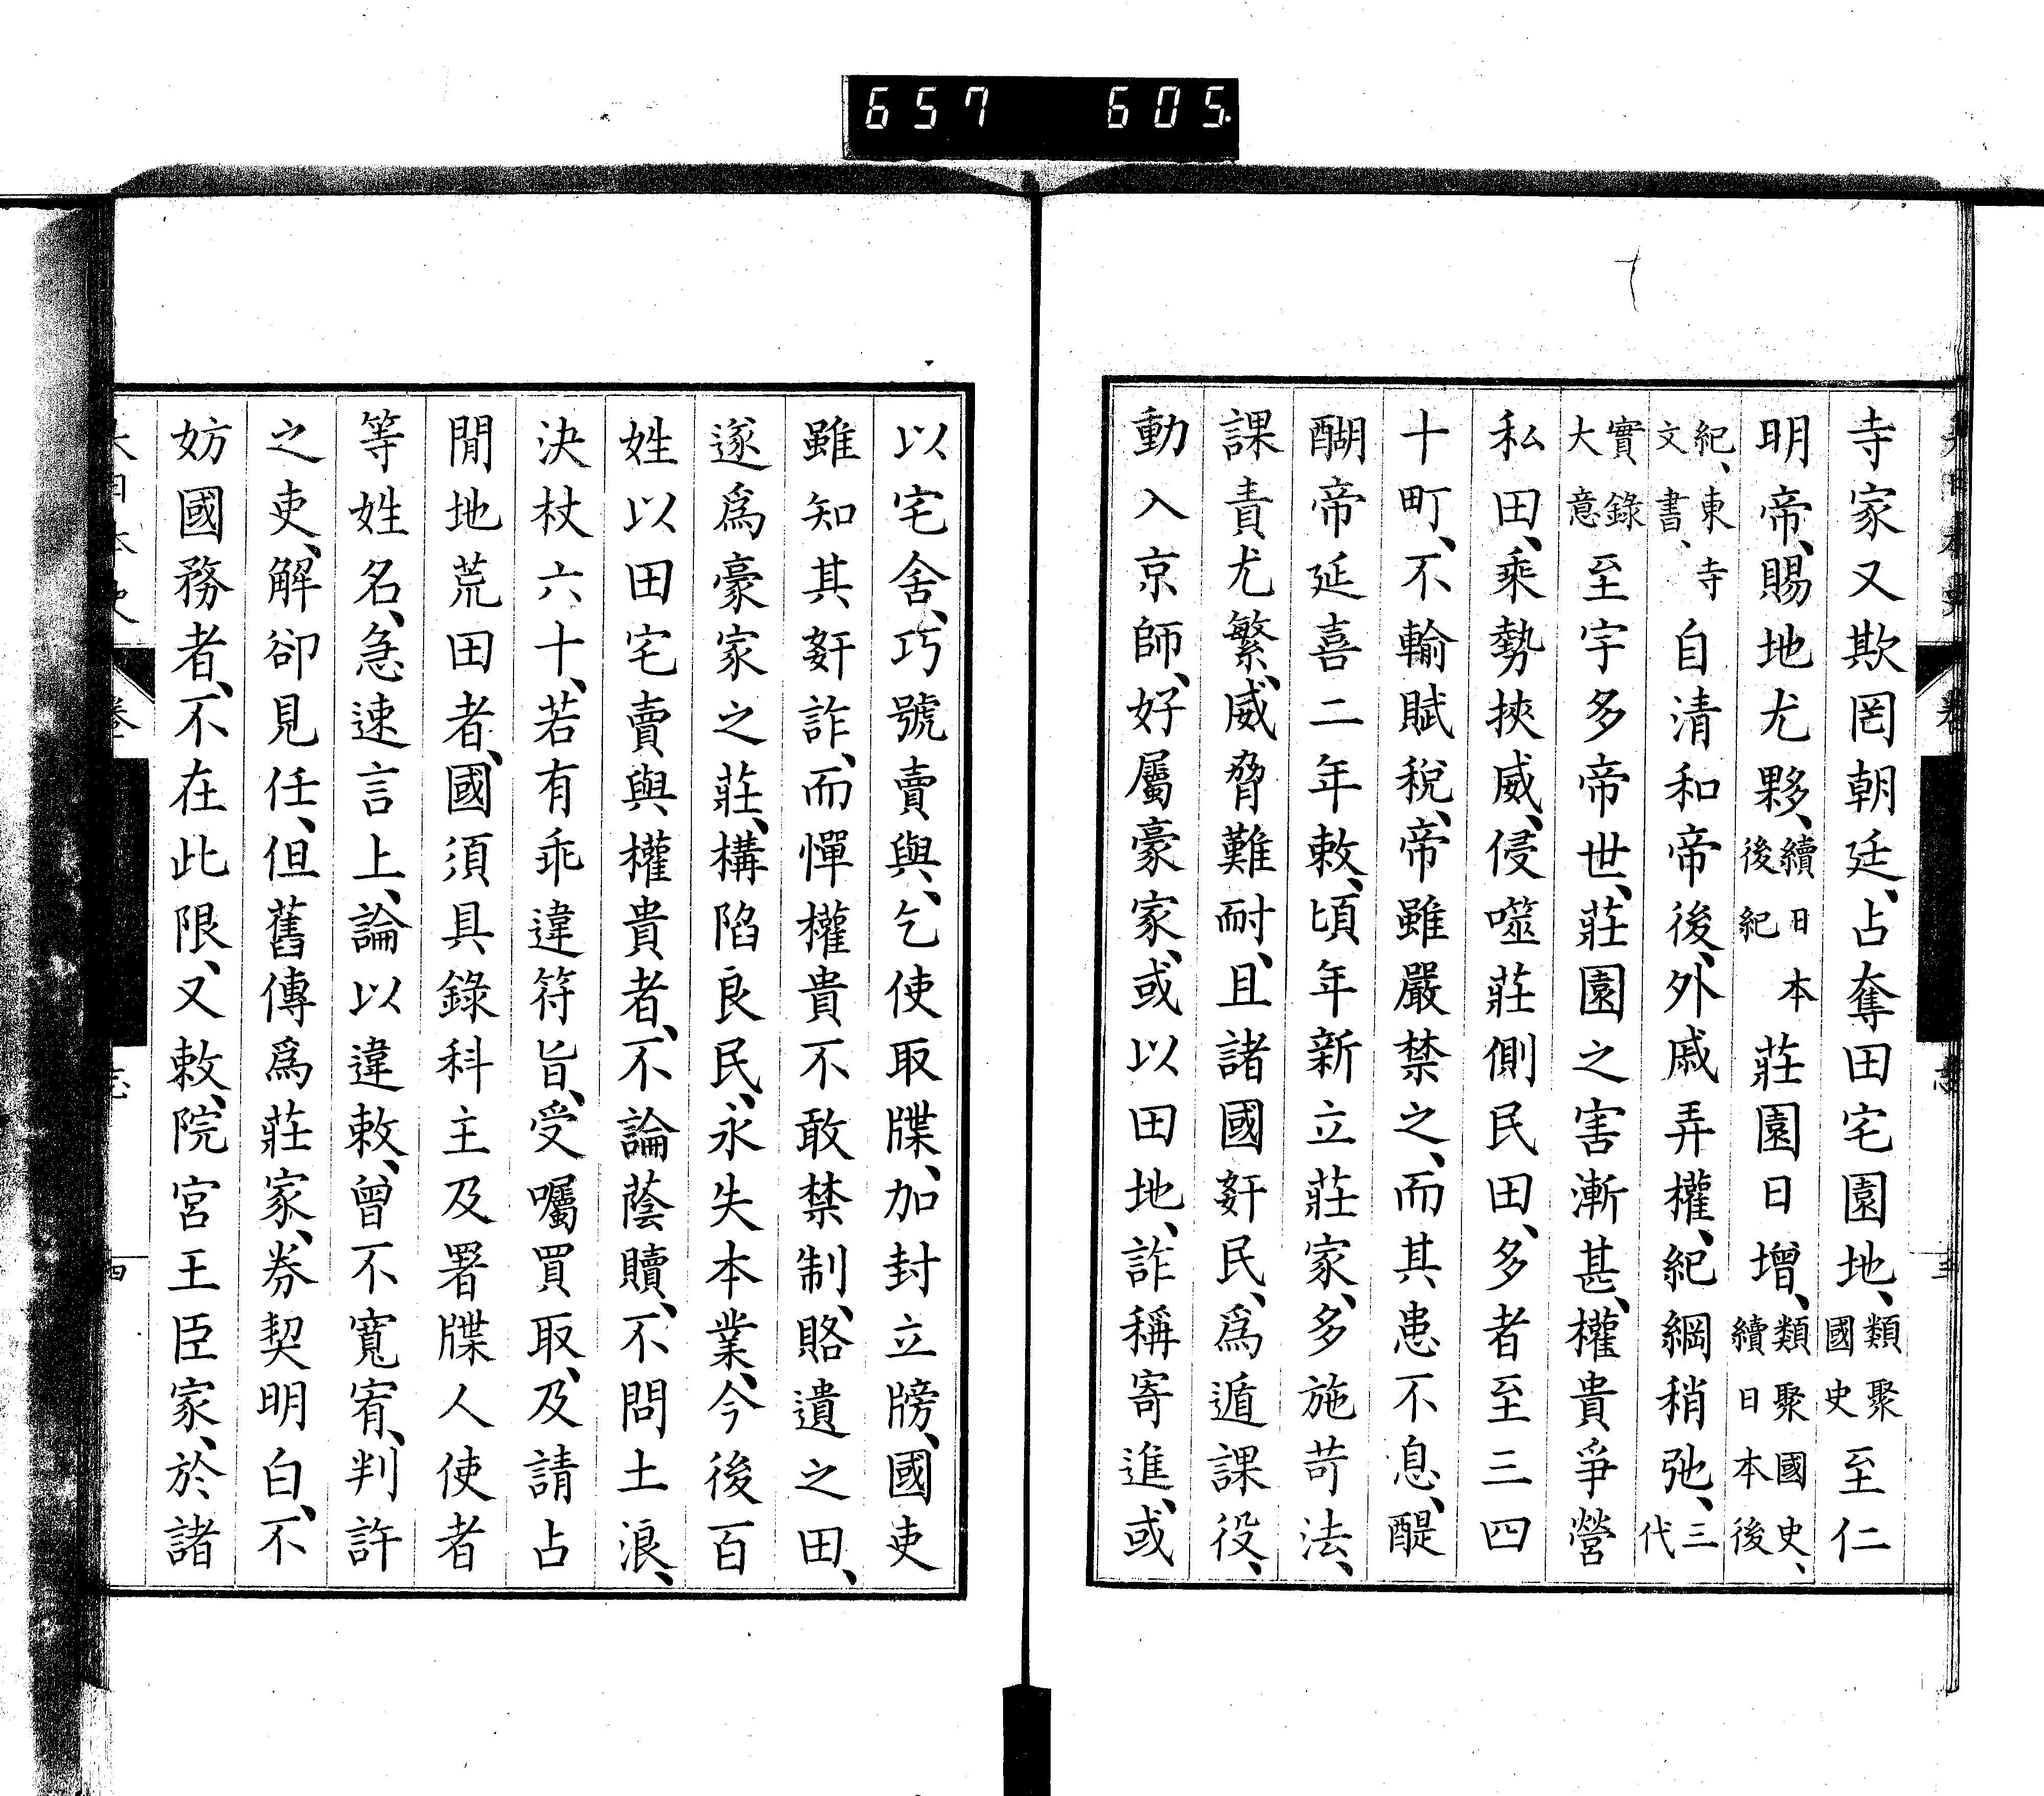 657 605
寺家又欺罔朝廷、占奪田宅園地、類聚國史至仁
明帝、賜地尤夥、續日本後紀莊園日增、類聚國史、續日本後
紀、東寺文書、自清和帝後、外戚弄權、紀綱稍弛、三代
實錄大意至宇多帝世、莊園之害漸甚、權貴爭營
私田、乘勢挾威、侵噬莊側民田、多者至三四
十町、不輸賦稅、帝雖嚴禁之、而其患不息、醍
醐帝延喜二年敕、頃年新立莊家、多施苛法、
課責尤繁、威脅難耐、且諸國姧民、爲遁課役、
動入京師、好屬豪家、或以田地、詐稱寄進、或
以宅舍、巧號賣與、乞使取牒、加封立牓、國吏
雖知其姧詐、而憚權貴不敢禁制、賂遺之田、
遂爲豪家之莊、構陷良民、永失本業、今後百
姓以田宅賣與權貴者、不論蔭贖、不問土浪、
決杖六十、若有乖違符旨、受囑買取、及請占
閒地荒田者、國須具錄科主及署牒人使者
等姓名、急速言上、論以違敕、曾不寬宥、判許
之吏、解卻見任、但舊傳爲莊家、券契明白、不
妨國務者、不在此限、又敕、院宮王臣家、於諸
大日本史 卷 志 四